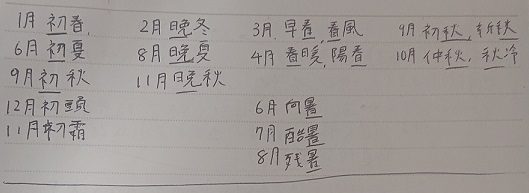 1月 初春 2月 晩冬 3月 早春, 春風 9月 初秋, 新秋
6月 初夏 8月 晩夏 4月 春暖, 陽春 10月 仲秋, 秋冷
9月 初秋 11月 晩秋
12月 初 6月 向暑
11月 初霜 7月 酷暑
8月 残暑